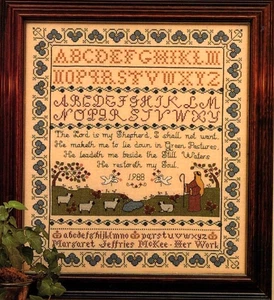 ABCDEFGHIJKLM
NOPQRSTUVWXYZ
ABCDEFGHIJKLM
NOPQRSTUVWXYZ
The Lord is my Shepherd, I shall not want.
He maketh me to lie down in Green Pastures.
He leadeth me beside the Still Waters
He restoreth my Soul.
1988
abcdefghijklmno pqrstuvwxyz
Margaret Jeffries McKee - Her Work